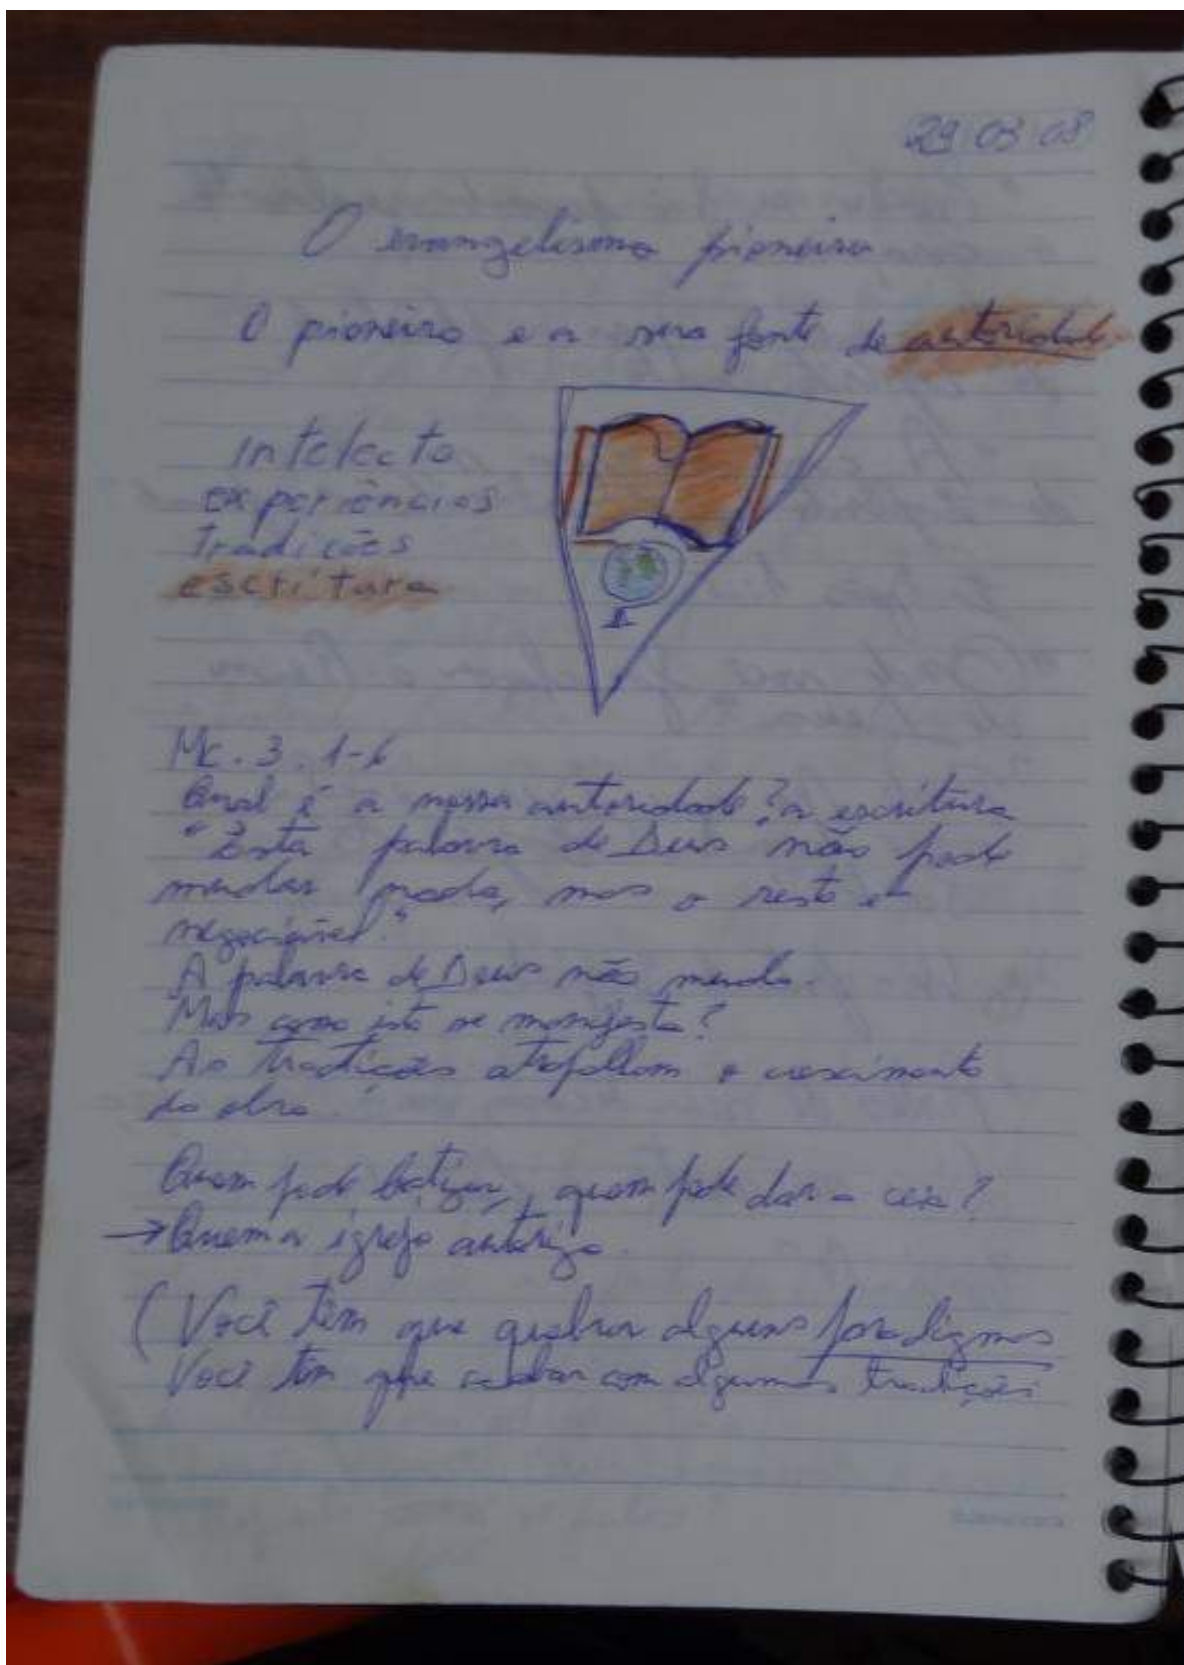 29 03 08
O evangelismo pioneiro
O pioneiro e a sua fonte de autoridade
Intelecto
experiências
tradições
escritura
Mc. 3. 1-6
Qual é a nossa autoridade? a escritura
"Esta palavra de Deus não pode
mudar nada, mas o resto é
negociável."
A palavra de Deus não muda.
Mas como isto se manifesta?
As tradições atrapalham o crescimento
da obra.
Quem pode batizar, quem pode dar a ceia?
→ Quem a igreja autoriza.
(Você têm que quebrar alguns paradigmas
Você têm que acabar com algumas tradições